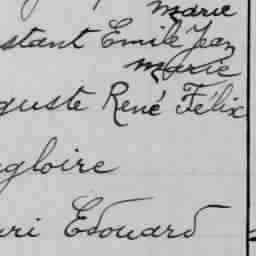 marie
stant Emile Jean
marie
guste René Félix
gloire
ri Edouard